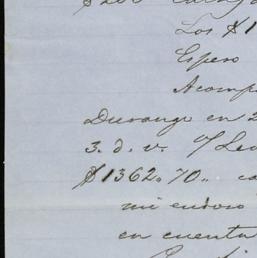 $200
Los $1
Espero
Acomp
Durango en 2
3. d. v. 
$1362.70..
mi endoso
en cuenta